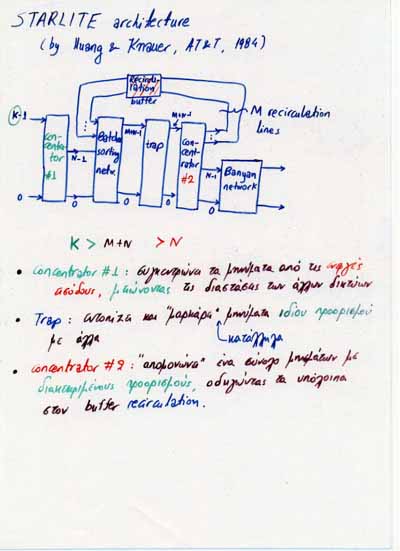 STARLITE architecture
(by Huang & Knauer, AT&T, 1984)
Recircu-
lation
buffer
M recirculation
lines
K-1
con-
centra-
tor
#1
N-1
Batcher
sorting
netw.
M+N-1
trap
M+N-1
con-
cent-
rator
#2
N-1
Banyan
network
0
0
0
0
0
K > M+N > N
• concentrator #1 : συγκεντρώνει τα μηνύματα από τις
εισόδους, μειώνοντας τις διαστάσεις των άλλων δικτύων
• Trap : εντοπίζει και "μαρκάρει" μηνύματα ίδιου προορισμού
με άλλα
κατάλληλα
• concentrator #2 : "απομονώνει" ένα σύνολο μηνυμάτων με
διακεκριμένους προορισμούς, οδηγώντας τα υπόλοιπα
στον buffer recirculation.